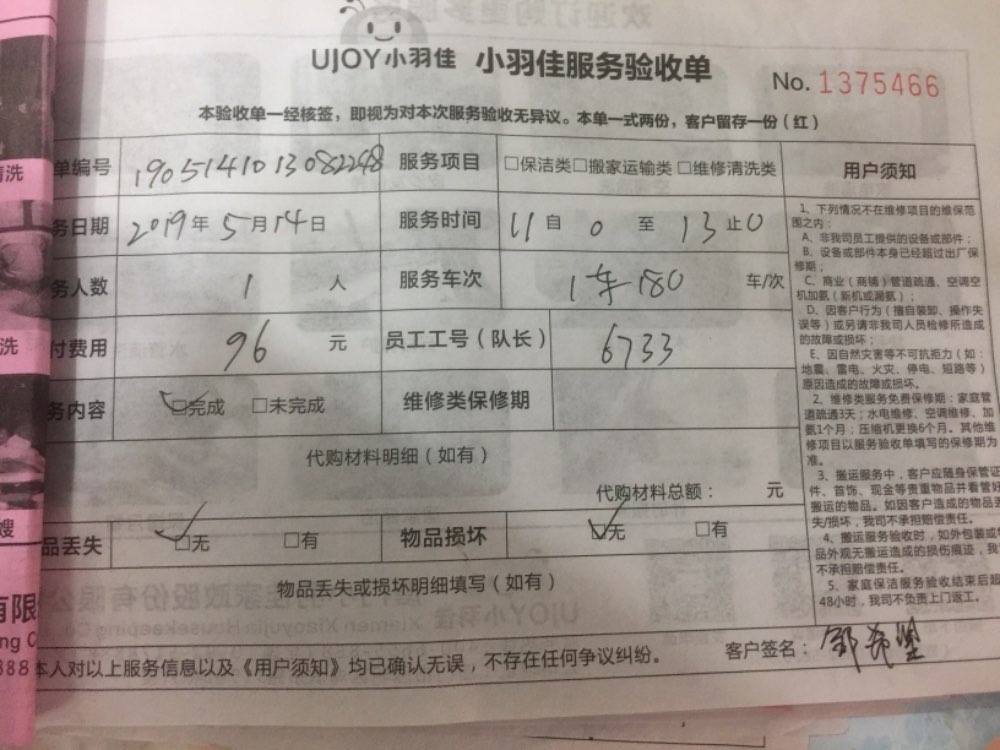 UJOY小羽佳 小羽佳服务验收单
No. 1375466
本验收单一经核签，即视为对本次服务验收无异议。本单一式两份，客户留存一份（红）
单编号 1905141013082248 服务项目 □保洁类□搬家运输类□维修清洗类 用户须知
务日期 2019年5月14日 服务时间 11自0至13止0
务人数 1人 服务车次 1车180 车/次
付费用 96元 员工工号（队长） 6733
务内容 □完成 □未完成 维修类保修期
代购材料明细（如有）
代购材料总额： 元
品丢失 □无 □有 物品损坏 □无 □有
物品丢失或损坏明细填写（如有）
1、下列情况不在维修项目的维保范
围之内：
A、非我司员工提供的设备或部件；
B、设备或部件本身已经超过出厂保
修期；
C、商业（商铺）管道疏通、空调空
机加氨（新机或漏氨）；
D、因客户行为（擅自装卸、操作失
误等）或另请非我司人员检修所造成
的故障或损坏；
E、因自然灾害等不可抗拒力（如：
地震、雷电、火灾、停电、短路等）
原因造成的故障或损坏。
2、维修类服务免费保修期：家庭管
道疏通3天；水电维修、空调维修、加
氨1个月；压缩机更换6个月。其他维
修项目以服务验收单填写的保修期为
准。
3、搬运服务中，客户应随身保管证
件、首饰、现金等贵重物品并看管好
搬运的物品。如因客户造成的物品丢
失/损坏，我司不承担赔偿责任。
4、搬运服务验收时，如外包装或
品外观无搬运造成的损伤痕迹，我
不承担赔偿责任。
5、家庭保洁服务验收结束后超
48小时，我司不负责上门返工。
本人对以上服务信息以及《用户须知》均已确认无误，不存在任何争议纠纷。
客户签名：
清洗
洗
嫂
有限
ng C
888